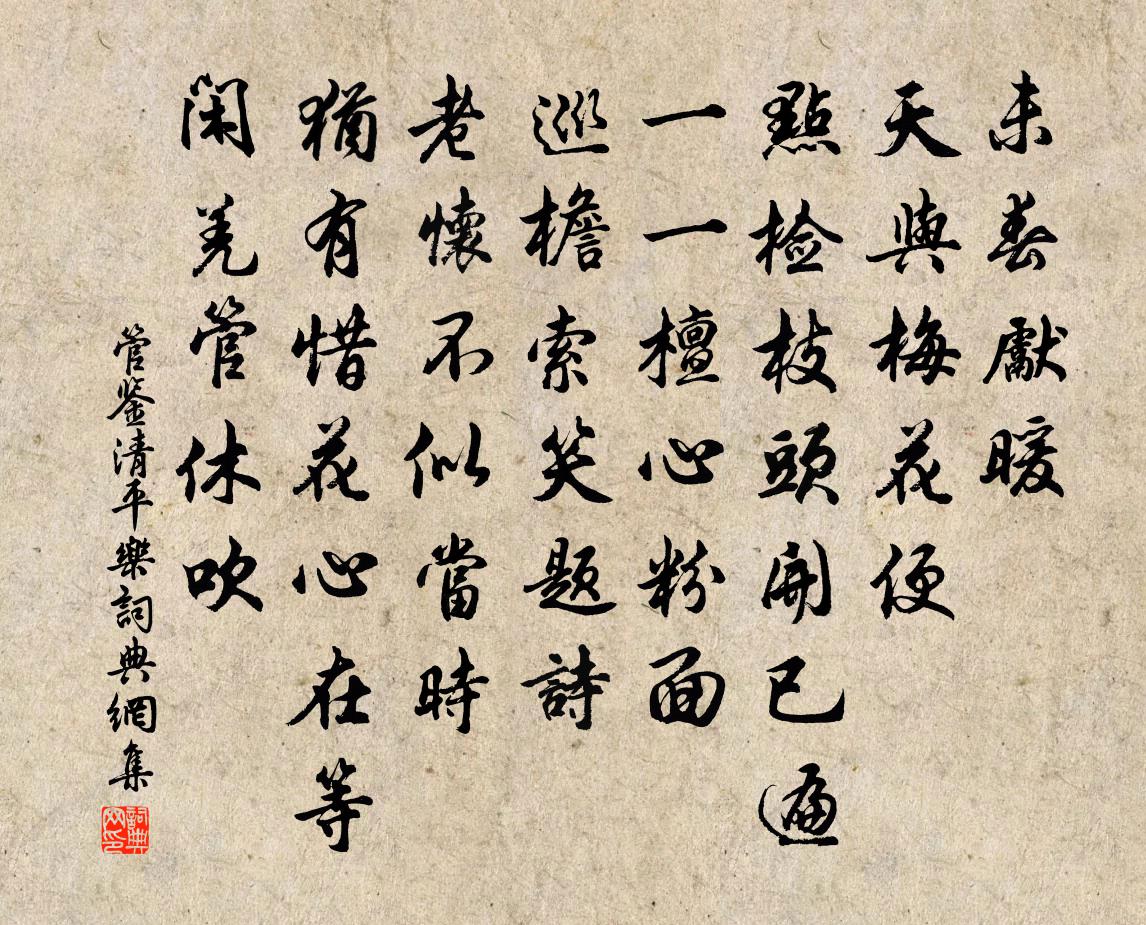 未春獻暖
天與梅花便
點檢枝頭開已遍
一一檀心粉面
巡檐索笑題詩
老懷不似當時
猶有惜花心在等
閑羌管休吹
管鉴清平樂詞典網集
詞典网印